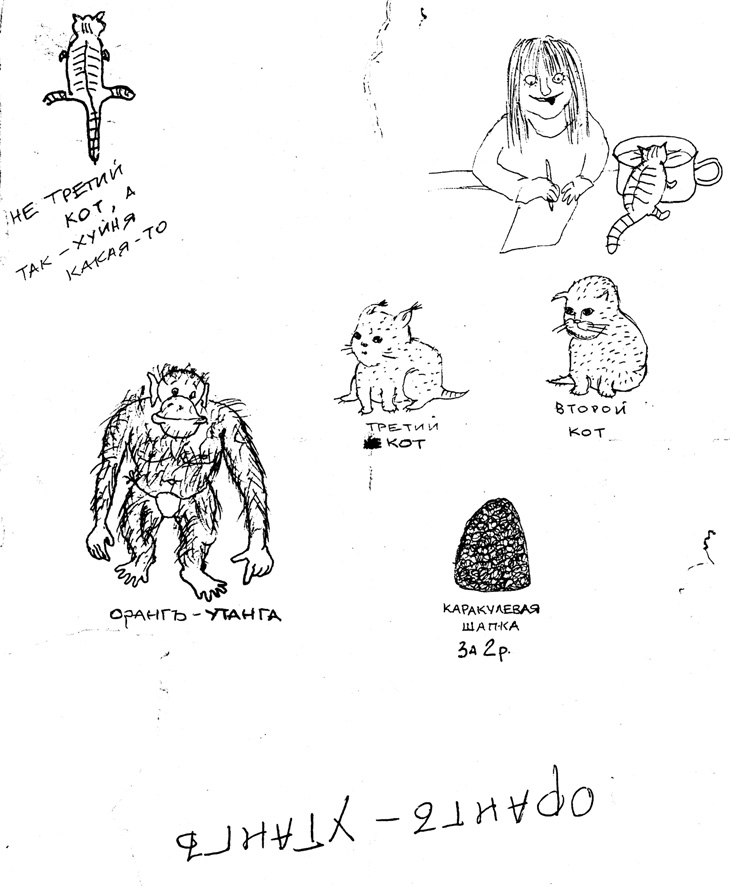 НЕ ТРЕТИЙ
КОТ, А
ТАК - ХУЙНЯ
КАКАЯ-ТО
ТРЕТИЙ
КОТ
ВТОРОЙ
КОТ
ОРАНГЪ-УТАНГА
КАРАКУЛЕВАЯ
ШАПКА
ЗА 2 р.
ОРАНГЪ - УТАНГЪ